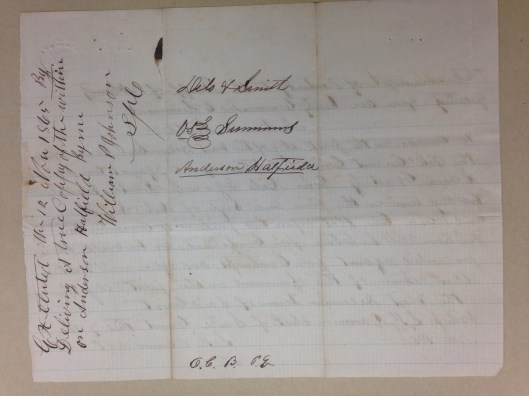 Executed the 12 Nov 1865 By
Delivering a true Coppy of the within
on Anderson Hatfield by me
William Johnson
Dils & Smith
Summons
Anderson Hatfield
O. C. B.